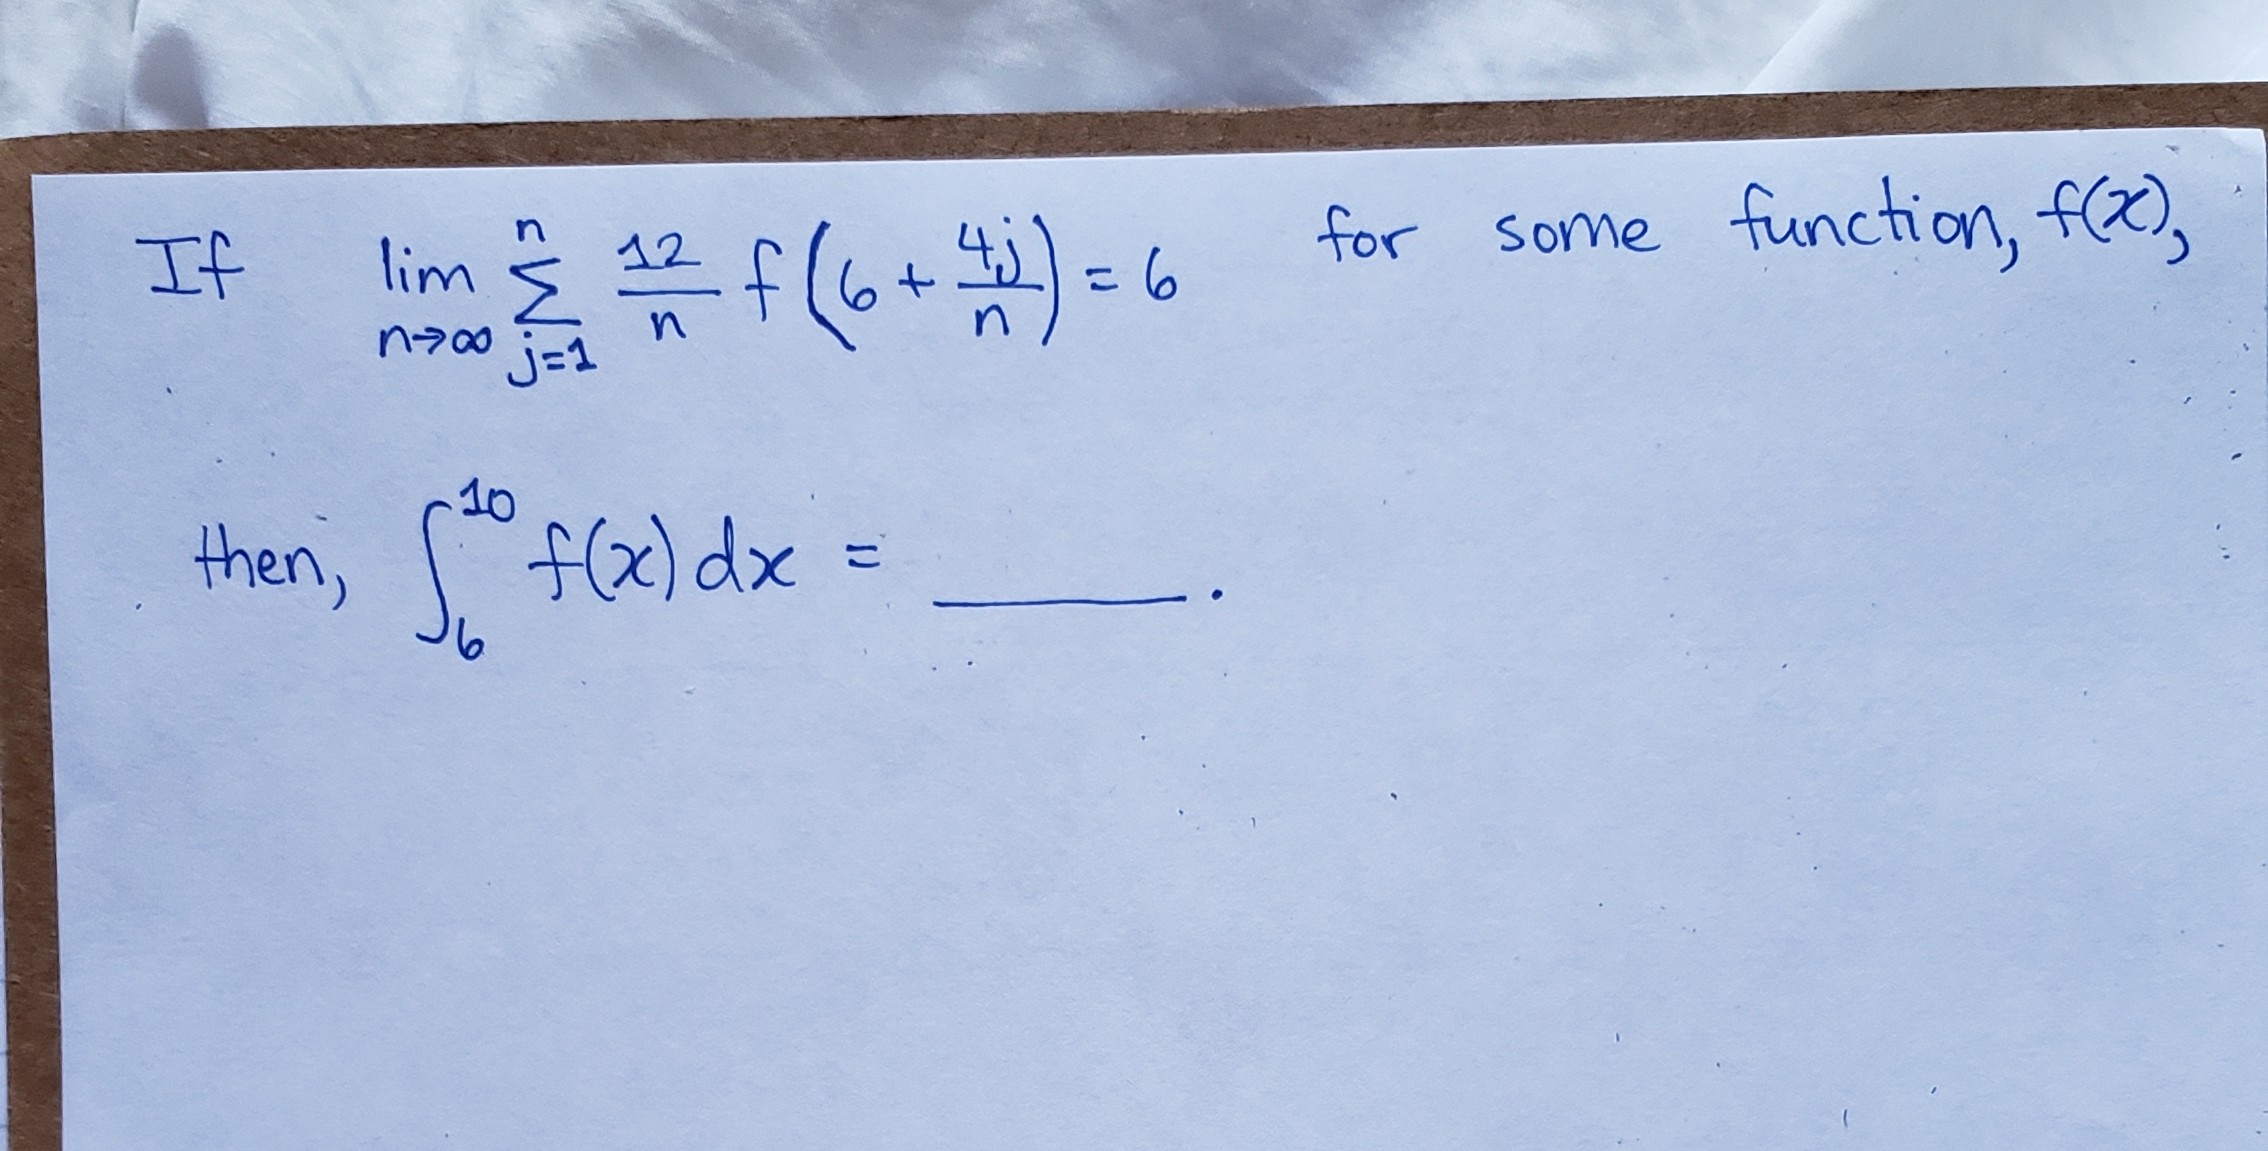 If lim n→∞ n Σ j=1 12/n f(6 + 4j/n) = 6 for some function, f(x),
then, ∫₆¹⁰ f(x) dx = ______.